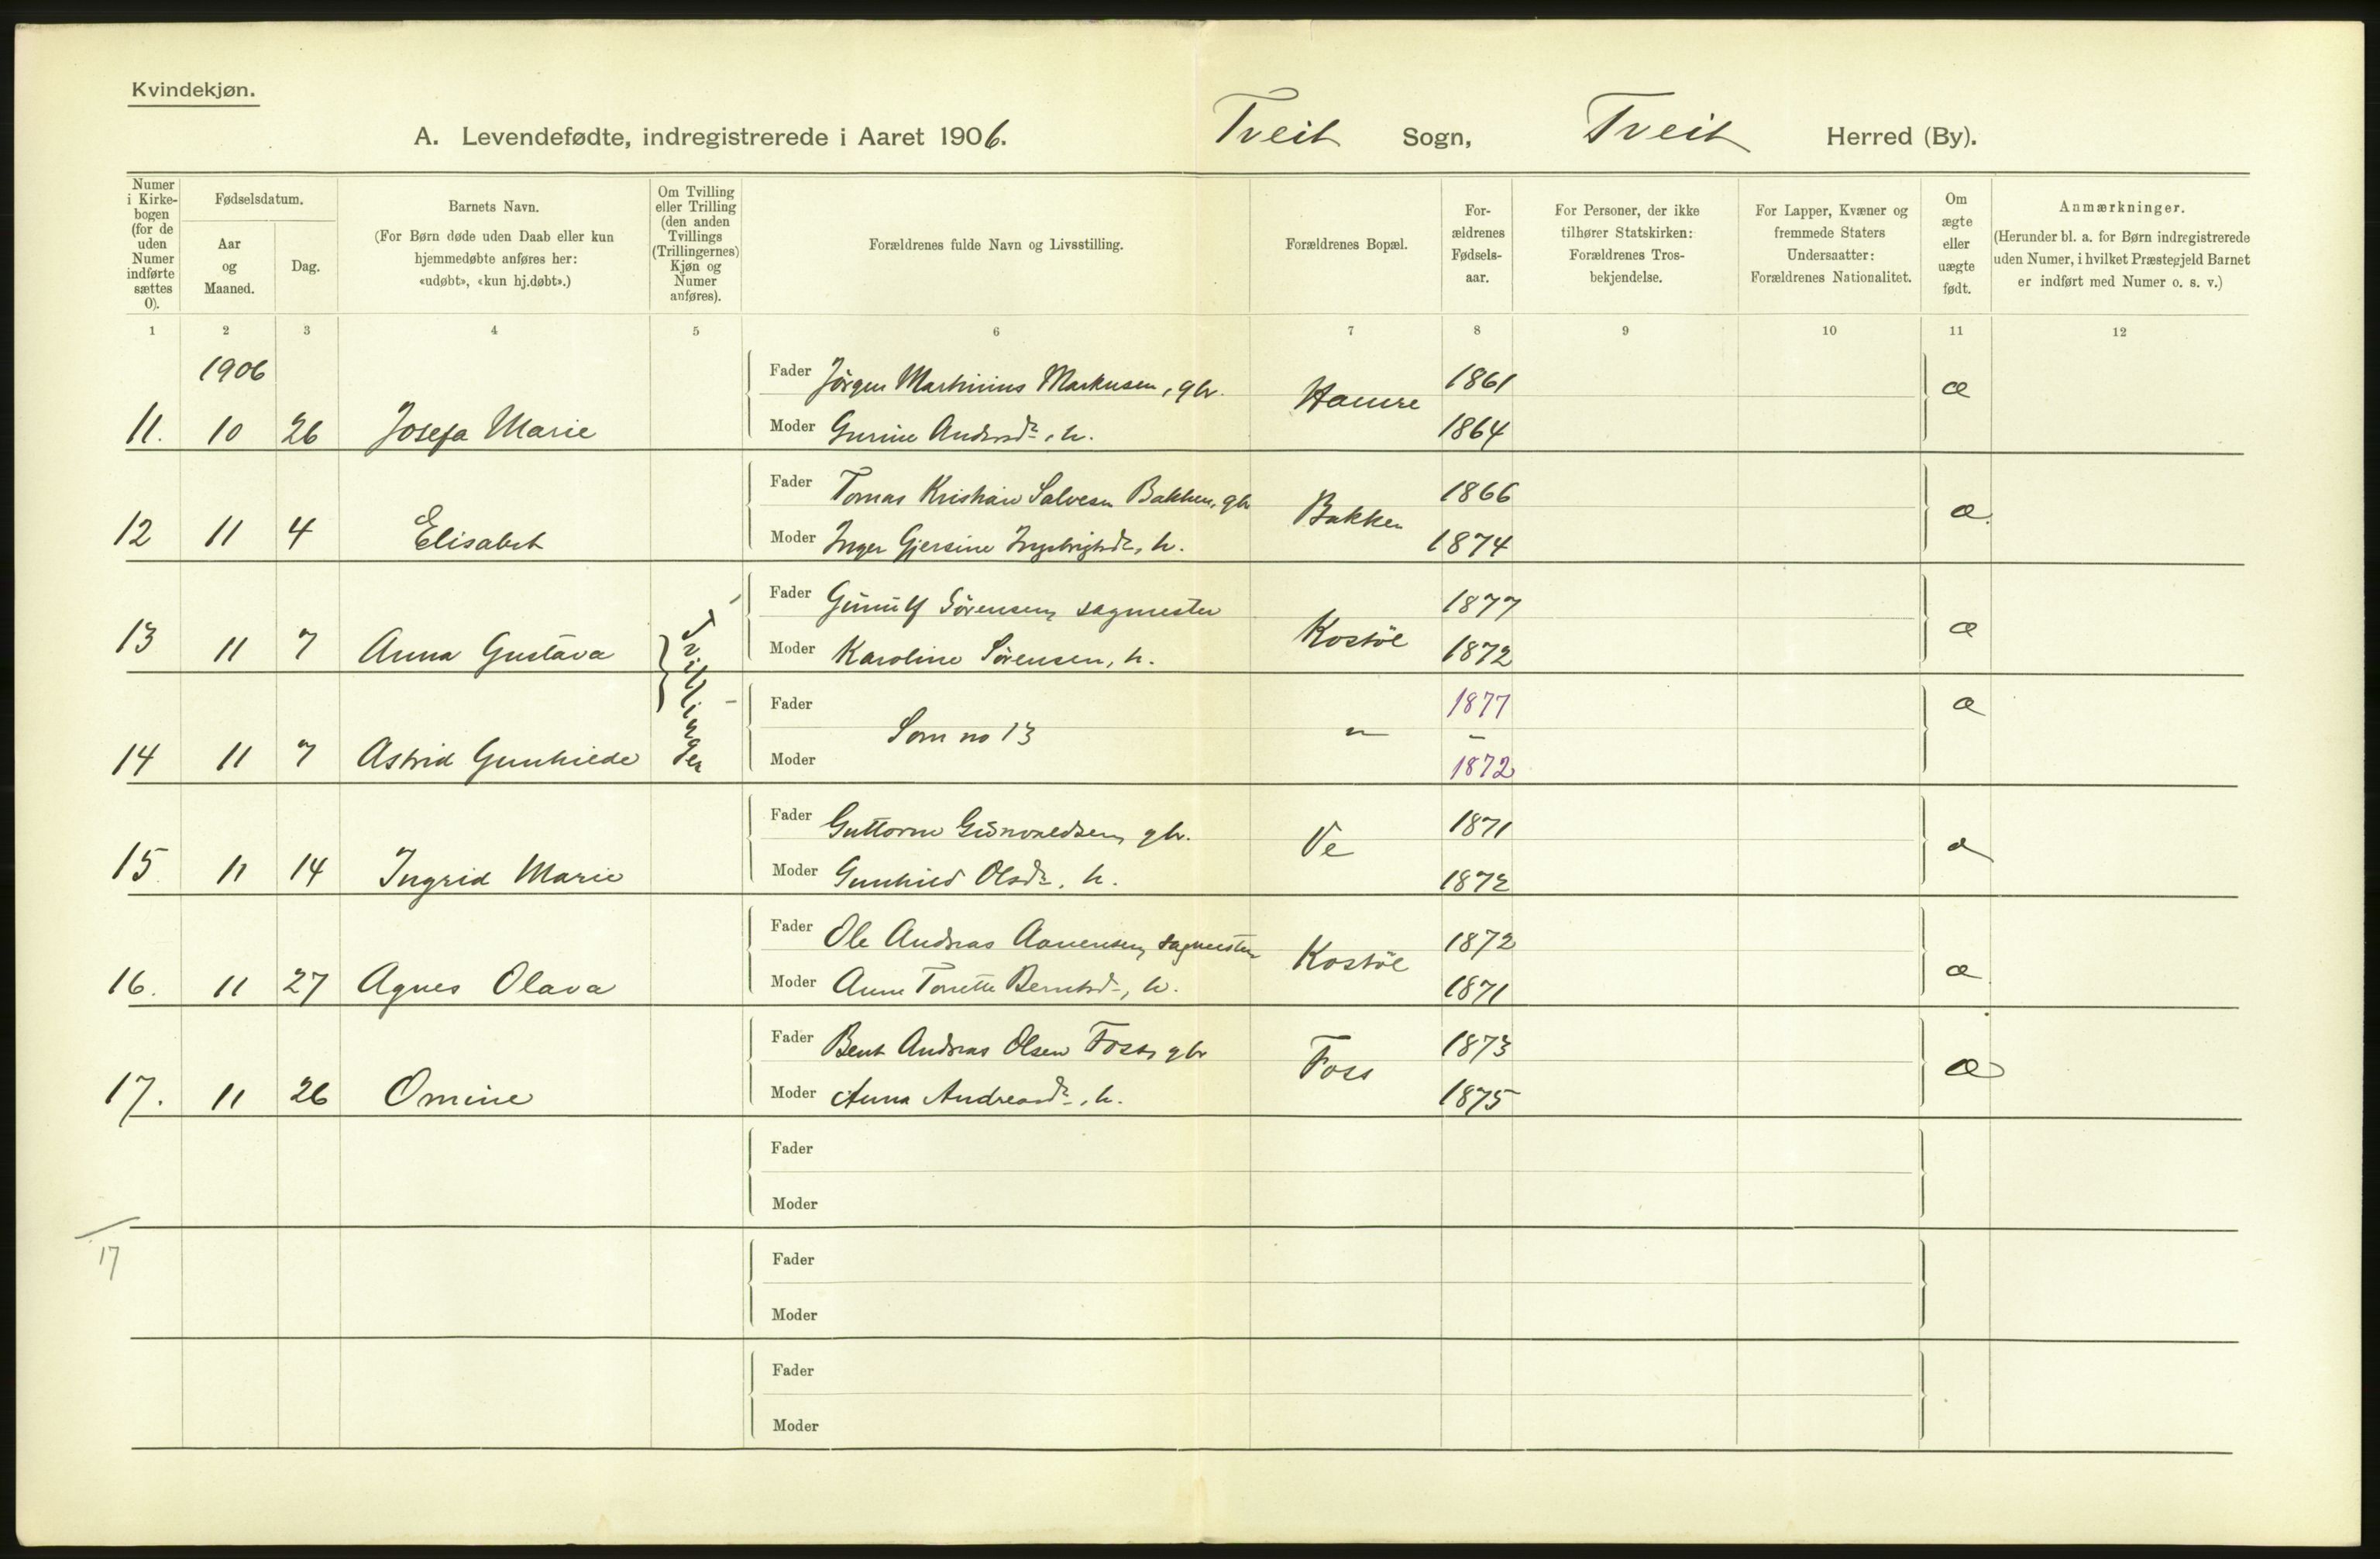 Kvindekjøn.
A. Levendefødte, indregistrerede i Aaret 1906. Tveit Sogn, Tveit Herred (By).
Numer i Kirkebogen (for de uden Numer indførte sættes 0).
Fødselsdatum.
Aar og Maaned.
Dag.
Barnets Navn.
(For Børn døde uden Daab eller kun hjemmedøbte anføres her: «udøbt», «kun hj.døbt».)
Om Tvilling eller Trilling (den anden Tvillings (Trillingernes) Kjøn og Numer anføres).
Forældrenes fulde Navn og Livsstilling.
Forældrenes Bopæl.
Forældrenes Fødselsaar.
For Personer, der ikke tilhører Statskirken: Forældrenes Trosbekjendelse.
For Lapper, Kvæner og fremmede Staters Undersaatter: Forældrenes Nationalitet.
Om ægte eller uægte født.
Anmærkninger.
(Herunder bl. a. for Børn indregistrerede uden Numer, i hvilket Præstegjeld Barnet er indført med Numer o. s. v.)
1 2 3 4 5 6 7 8 9 10 11 12
1906
Fader Jörgen Martinius Markusen, gbr. Hamre 1861 æ
11. 10 26 Josefa Marie Moder Gurine Andersdr, h. 1864
Fader Tomas Kristian Salvesen Bakken, gbr Bakken 1866 æ
12 11 4 Elisabet Moder Inger Gjersine h. 1874
Fader Gunulf Sörensen, sagmester Kostöl 1877 æ
13 11 7 Anna Gustava Tvillinger Moder Karoline Sörensen, h. 1872
Fader Som no 13 " 1877 æ
14 11 7 Astrid Gunhilde Moder 1872
Fader Guttorm Gunvaldsen, gbr. Ve 1871 æ
15 11 14 Ingrid Marie Moder Gunhild Olsdr, h. 1872
Fader Ole Andreas Aanensen, sagmester Kostöl 1872 æ
16. 11 27 Agnes Olava Moder Anne Tonette Berntsdr, h. 1871
Fader Bent Andreas Olsen Foss, gbr Foss 1873 æ
17. 11 26 Omine Moder Anna Andreasdr, h. 1875
Fader
Moder
17
Fader
Moder
Fader
Moder